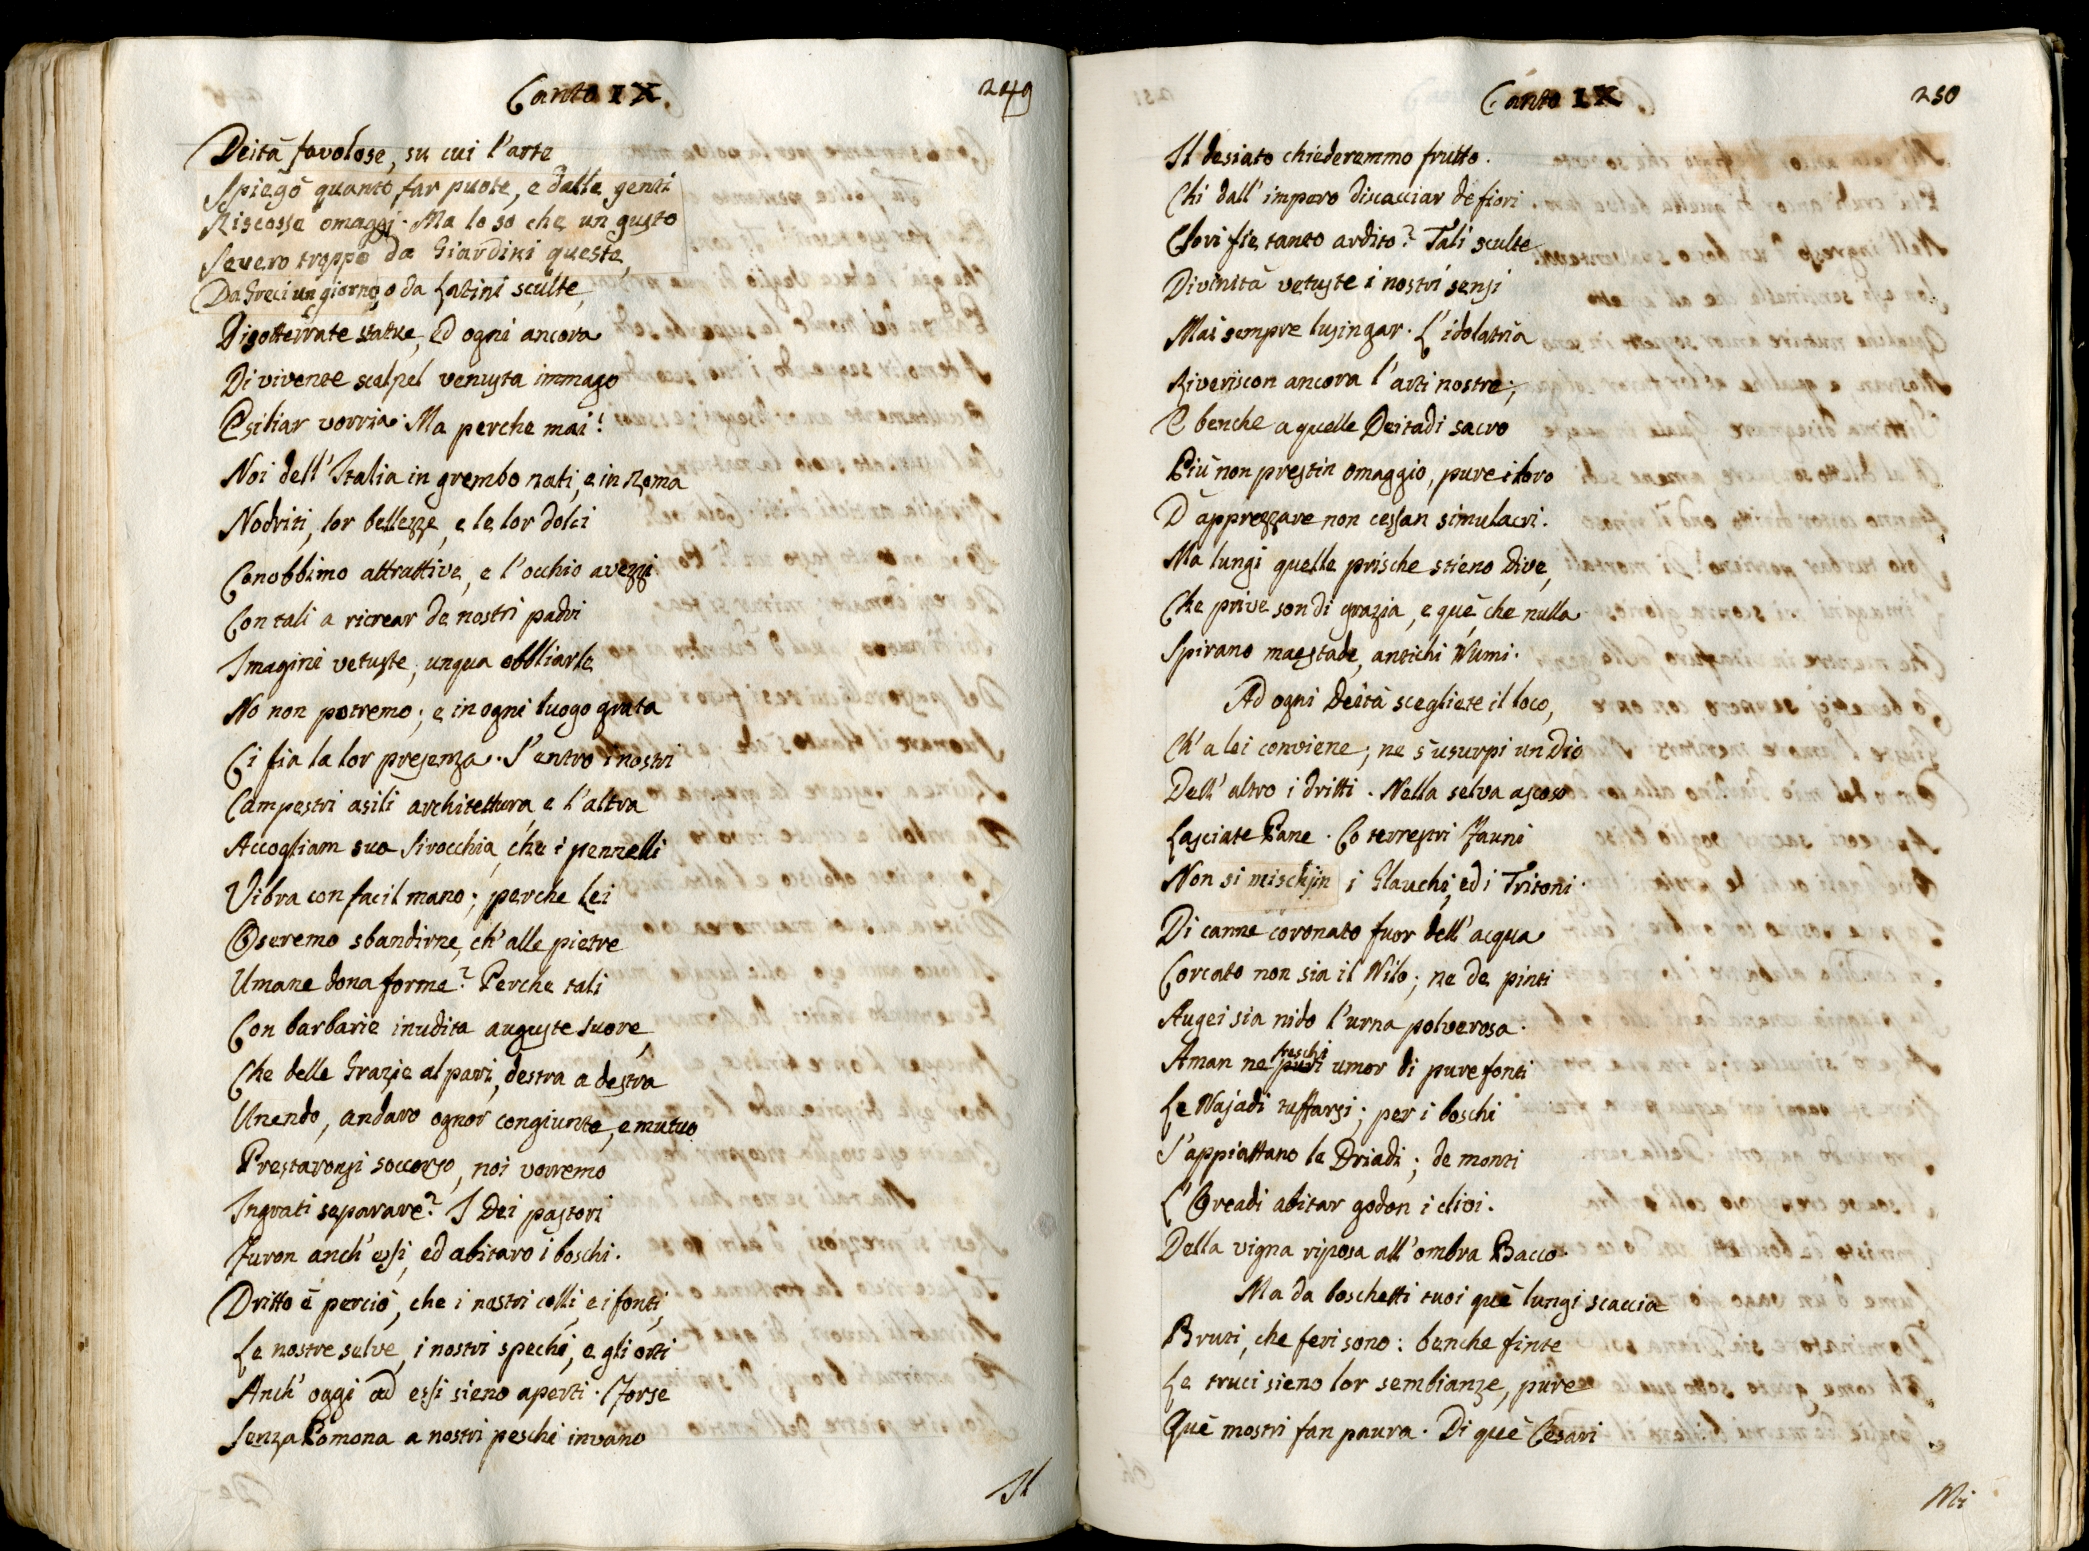 Canto IX. 249
Deità favolose, su cui l'arte
Spiegò quanto far puote, e dalle genti
Riscosse omaggi. Ma lo so che un gusto
Severo troppo da Giardini queste,
Da Greci un giorno, o da Latini sculte,
Disotterrate statue, ed ogni ancora
Di vivente scalpel venusta immago
Esiliar vorria. Ma perche mai!
Noi dell'Italia in grembo nati, e in Roma
Nodriti, lor bellezze, e le lor dolci
Conobbimo attrattive, e l'occhio avezzi
Con tali a ricrear de nostri padri
Imagini vetuste, unqua obbliarle
No non potremo; e in ogni luogo grata
Ci fia la lor presenza. S'entro i nostri
Campestri asili architettura, e l'altra
Accogliam sua Sirocchia, che i pennelli
Vibra con facil mano; perche Lei
Oseremo sbandirne, ch'alle pietre
Umane dona forme? Perche tali
Con barbarie inudita auguste suore,
Che delle Grazie al pari, destra a destra
Unendo, andaro ognor congiunte, e mutuo
Prestaronsi soccorso, noi vorremo
Ingrati separare? I Dei pastori
Furon anch'essi, ed abitaro i boschi.
Dritto è perciò, che i nostri colli, e i fonti,
Le nostre selve, i nostri spechi, e gli orti
Anch'oggi ad essi sieno aperti. Forse
Senza Pomona a nostri peschi invano
Il
Canto IX 250
Il desiato chiederemmo frutto.
Chi dall'impero discacciar de fiori
Clori fie tanto ardito? Tali sculte
Divinità vetuste i nostri sensi
Mai sempre lusingar. L'idolatria
Riveriscon ancora l'arti nostre;
E benche a quelle Deitadi sacro
Più non prestin omaggio, pure i loro
D'apprezzare non cessan simulacri.
Ma lungi quelle prische stieno Dive,
Che prive son di grazia, e què che nulla
Spirano maestade, antichi Numi.
Ad ogni Deità scegliete il loco,
Ch'a lei conviene; ne s'usurpi un Dio
Dell'altro i dritti. Nella selva ascoso
Lasciate Pane. Co terrestri Fauni
Non si mischjin i Glauchi, ed i Tritoni.
Di canne coronato fuor dell'acqua
Corcato non sia il Nilo; ne de pinti
Augei sia nido l'urna polverosa.
freschi
Aman ne puri umor di pure fonti
Le Najadi tuffarsi; per i boschi
S'appiattano le Driadi; de monti
L'Oreadi abitar godon i clivi.
Della vigna riposa all'ombra Bacco.
Ma da boschetti tuoi què lungi scaccia
Bruti, che feri sono: benche finte
Le truci sieno lor sembianze, pure
Què mostri fan paura. Di què Cesari
Mi